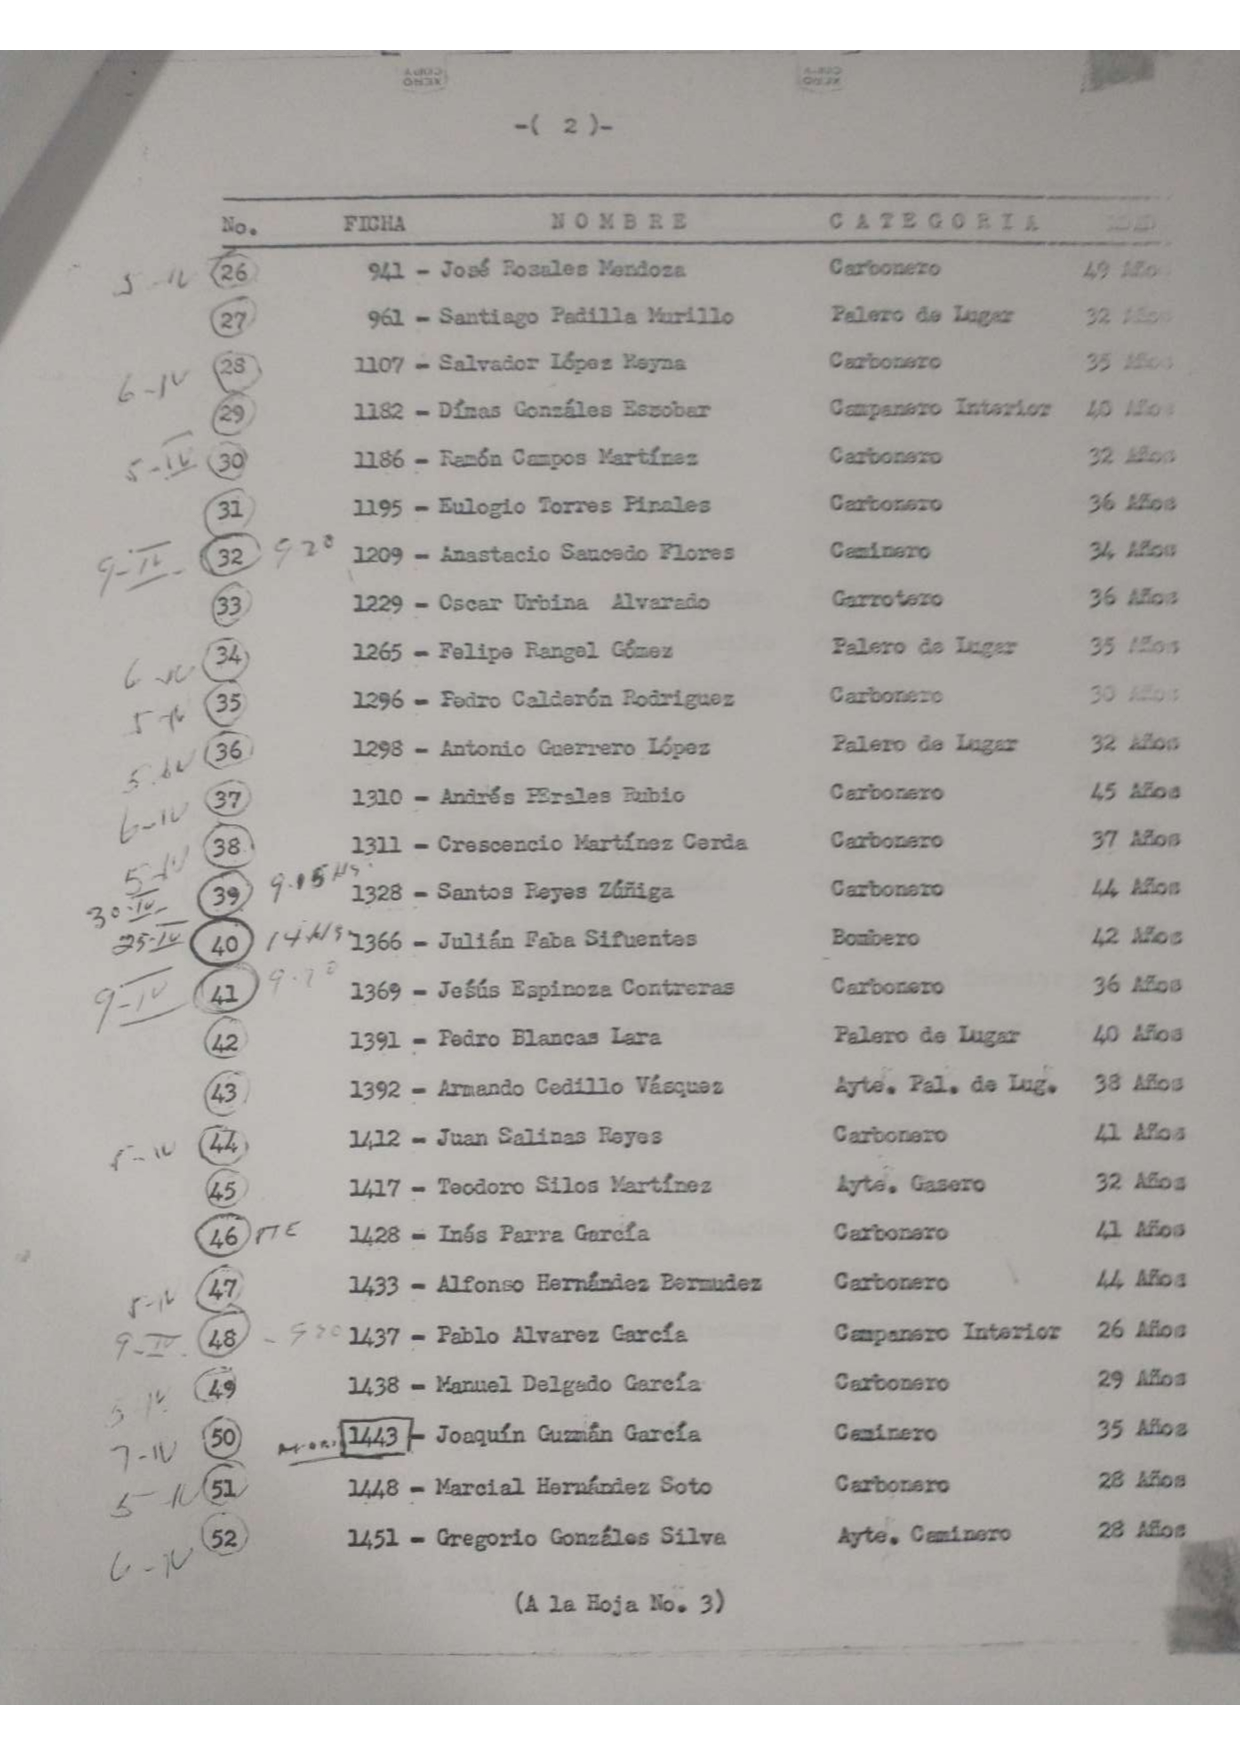 XERO COPY XERO COPY
-( 2 )-
No. FICHA N O M B R E C A T E G O R I A
5-IV 26 941 - José Rosales Mendoza Carbonero 49 Años
27 961 - Santiago Padilla Murillo Palero de Lugar 32 Años
6-IV 28 1107 - Salvador López Reyna Carbonero 35 Años
29 1182 - Dímas Gonzáles Escobar Campanero Interior 40 Años
5-IV 30 1186 - Ramón Campos Martínez Carbonero 32 Años
31 1195 - Eulogio Torres Pinales Carbonero 36 Años
9-IV- 32 9 20 1209 - Anastacio Saucedo Flores Caminero 34 Años
33 1229 - Oscar Urbina Alvarado Garrotero 36 Años
6-IV 34 1265 - Felipe Rangel Gómez Palero de Lugar 35 Años
5-IV 35 1296 - Pedro Calderón Rodriguez Carbonero 30 Años
5-IV 36 1298 - Antonio Guerrero López Palero de Lugar 32 Años
6-IV 37 1310 - Andrés PErales Rubio Carbonero 45 Años
5-IV 38 1311 - Crescencio Martínez Cerda Carbonero 37 Años
30-IV- 39 9.15 Hs. 1328 - Santos Reyes Zúñiga Carbonero 44 Años
25-IV 40 14 Hs- 1366 - Julián Faba Sifuentes Bombero 42 Años
9-IV 41 9.20 1369 - Jesús Espinoza Contreras Carbonero 36 Años
42 1391 - Pedro Blancas Lara Palero de Lugar 40 Años
43 1392 - Armando Cedillo Vásquez Ayte. Pal. de Lug. 38 Años
5-IV 44 1412 - Juan Salinas Reyes Carbonero 41 Años
45 1417 - Teodoro Silos Martínez Ayte. Gasero 32 Años
46 PTE 1428 - Inés Parra García Carbonero 41 Años
5-IV 47 1433 - Alfonso Hernández Bermudez Carbonero 44 Años
9-IV. 48 - 9 20 1437 - Pablo Alvarez García Campanero Interior 26 Años
5-IV 49 1438 - Manuel Delgado García Carbonero 29 Años
7-IV 50 1443 - Joaquín Guzmán García Caminero 35 Años
5-IV 51 1448 - Marcial Hernández Soto Carbonero 28 Años
6-IV 52 1451 - Gregorio Gonzáles Silva Ayte. Caminero 28 Años
(A la Hoja No. 3)